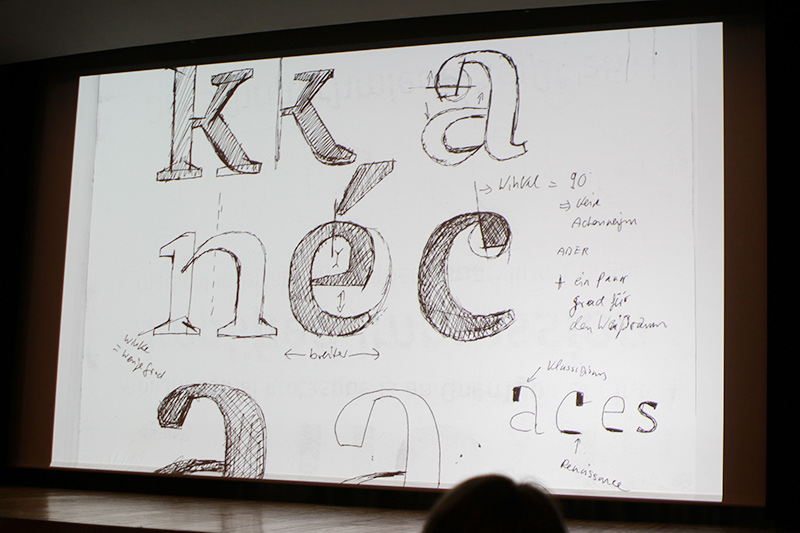 k k a
n é c
Winkel = 90°
⇒ keine
Achsneign
ABER
+ ein paar
grad für
den Weißraum
Winkel
= wenige Grad
← breiter →
a a
Klassizismus
a c e s
Renaissance